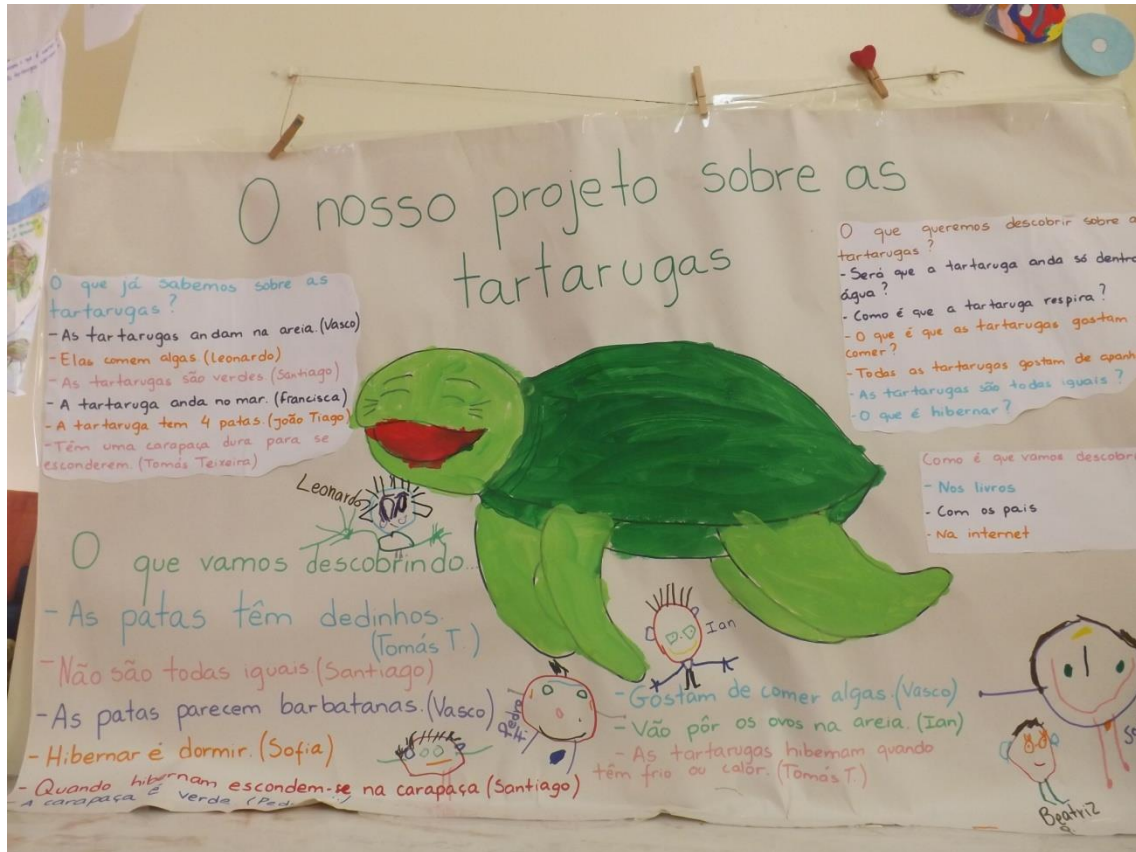 O nosso projeto sobre as
tartarugas
O que já sabemos sobre as
tartarugas?
- As tartarugas andam na areia. (Vasco)
- Elas comem algas. (Leonardo)
- As tartarugas são verdes. (Santiago)
- A tartaruga anda no mar. (Francisca)
- A tartaruga tem 4 patas. (João Tiago)
- Têm uma carapaça dura para se
esconderem. (Tomás Teixeira)
O que queremos descobrir sobre a
tartarugas?
- Será que a tartaruga anda só dentro
água?
- Como é que a tartaruga respira?
- O que é que as tartarugas gostam
comer?
- Todas as tartarugas gostam de apanh
- As tartarugas são todas iguais?
- O que é hibernar?
Como é que vamos descobri
- Nos livros
- Com os pais
- Na internet
Leonardo
O que vamos descobrindo...
- As patas têm dedinhos.
(Tomás T.)
- Não são todas iguais (Santiago)
- As patas parecem barbatanas. (Vasco)
- Hibernar é dormir. (Sofia)
- Quando hibernam escondem-se na carapaça (Santiago)
- A carapaça é verde (Ped
Pedro
Ian
- Gostam de comer algas. (Vasco)
- Vão pôr os ovos na areia. (Ian)
- As tartarugas hibernam quando
têm frio ou calor. (Tomás T.)
Beatriz